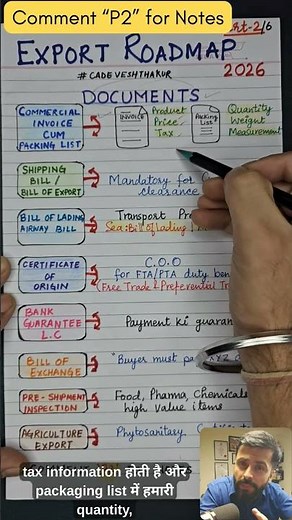 Comment “P2” for Notes
2/6
EXPORT ROADMAP
# CADEVESHTHAKUR
2026
DOCUMENTS
COMMERCIAL
INVOICE
CUM
PACKING LIST
INVOICE
Product
Price
Tax
PACKING
LIST
Quantity
Weight
Measurement
SHIPPING
BILL /
BILL OF EXPORT
Mandatory for
clearance
BILL OF LADING
AIRWAY BILL
Transport
Sea: Bill of lading
CERTIFICATE
OF
ORIGIN
C.O.O
for FTA/PTA duty
(Free Trade & Preferential
BANK
GUARANTEE
L.C
Payment ki
BILL OF
EXCHANGE
"Buyer must
XYZ
PRE-SHIPMENT
INSPECTION
Food, Phama, Chemicals
high value items
AGRICULTURE
EXPORT
Phytosanitary
tax information होती है और
packaging list में हमारी
quantity,